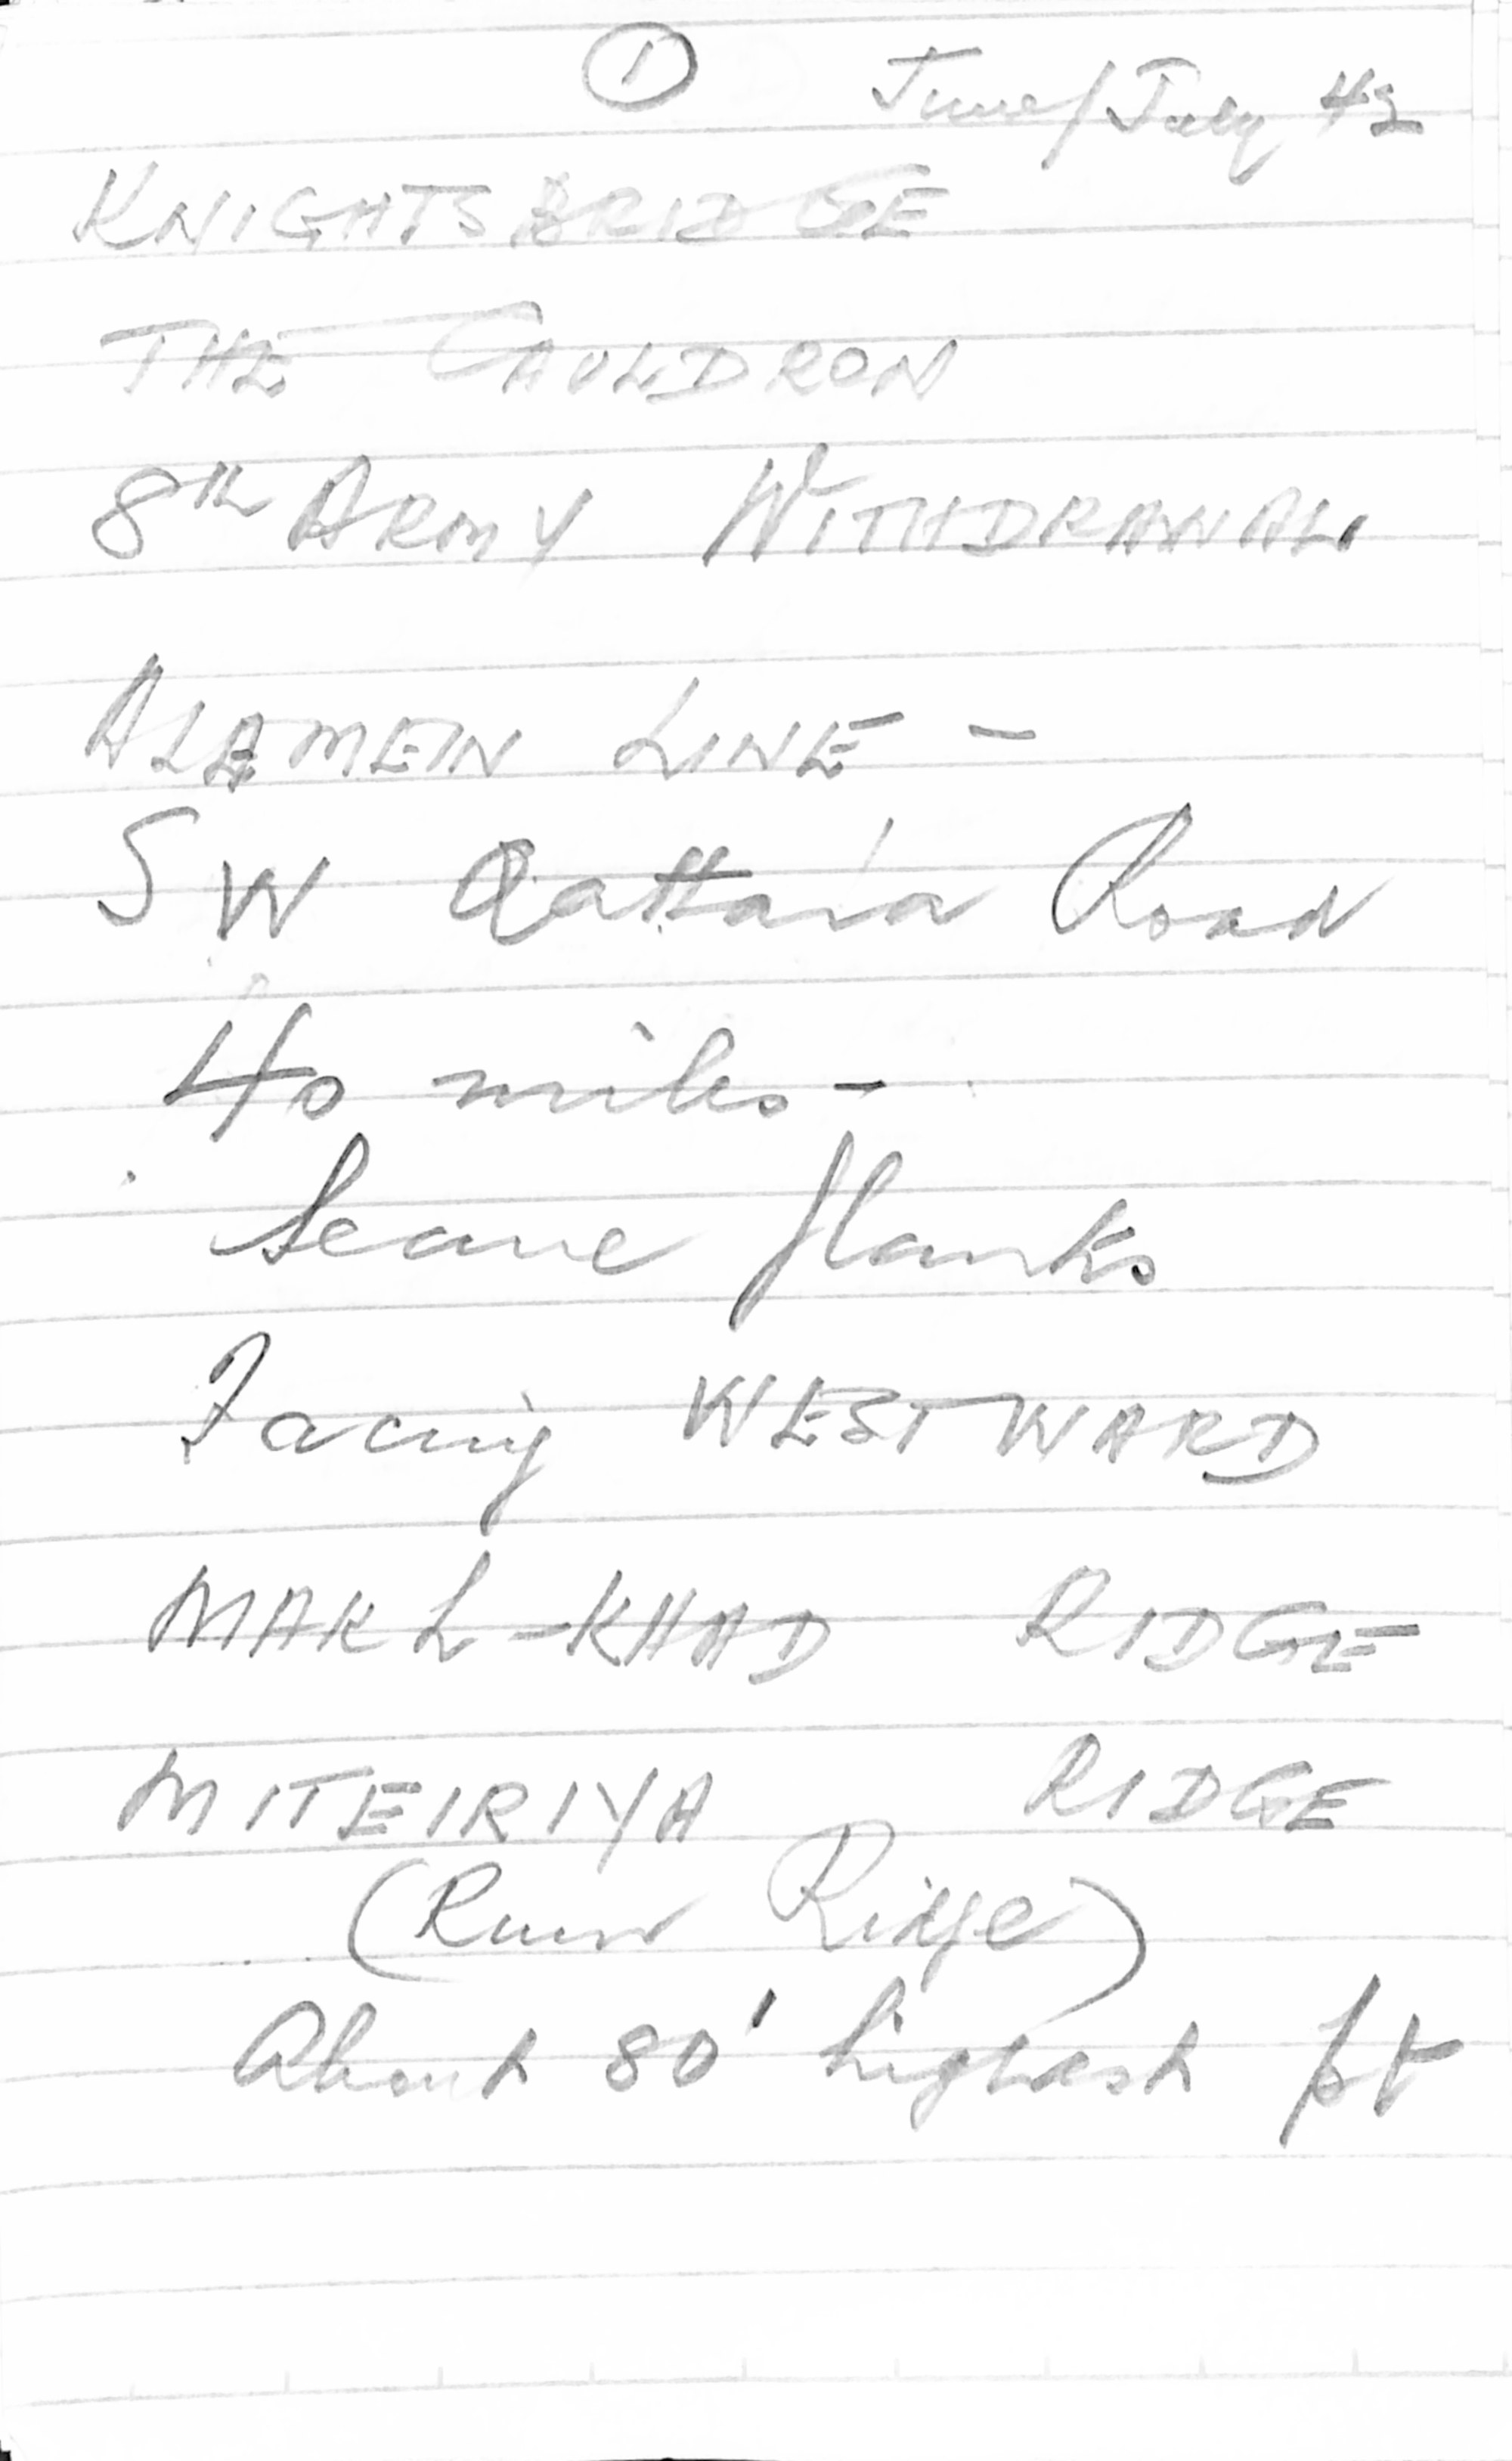 ① June/July 42
KNIGHTSBRIDGE
THE CAULDRON
8th ARMY WITHDRAWAL
ALAMEIN LINE -
SW Qattara Road
40 miles -
Secure flanks
Facing WESTWARD
MAKL-KHAD RIDGE
MITEIRIYA RIDGE
(Ruin Ridge)
About 80' highest pt